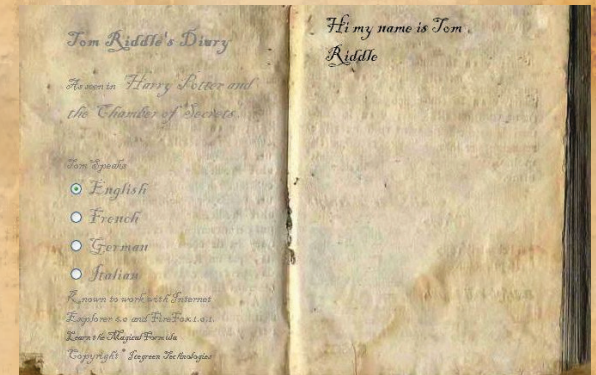 Tom Riddle's Diary
As seen in Harry Potter and
the Chamber of Secrets.
Tom Speaks
English
French
German
Italian
Known to work with Internet
Explorer 6.0 and FireFox 1.0.1.
Learn the Magical Formula
Copyright © Icegreen Technologies
Hi my name is Tom
Riddle